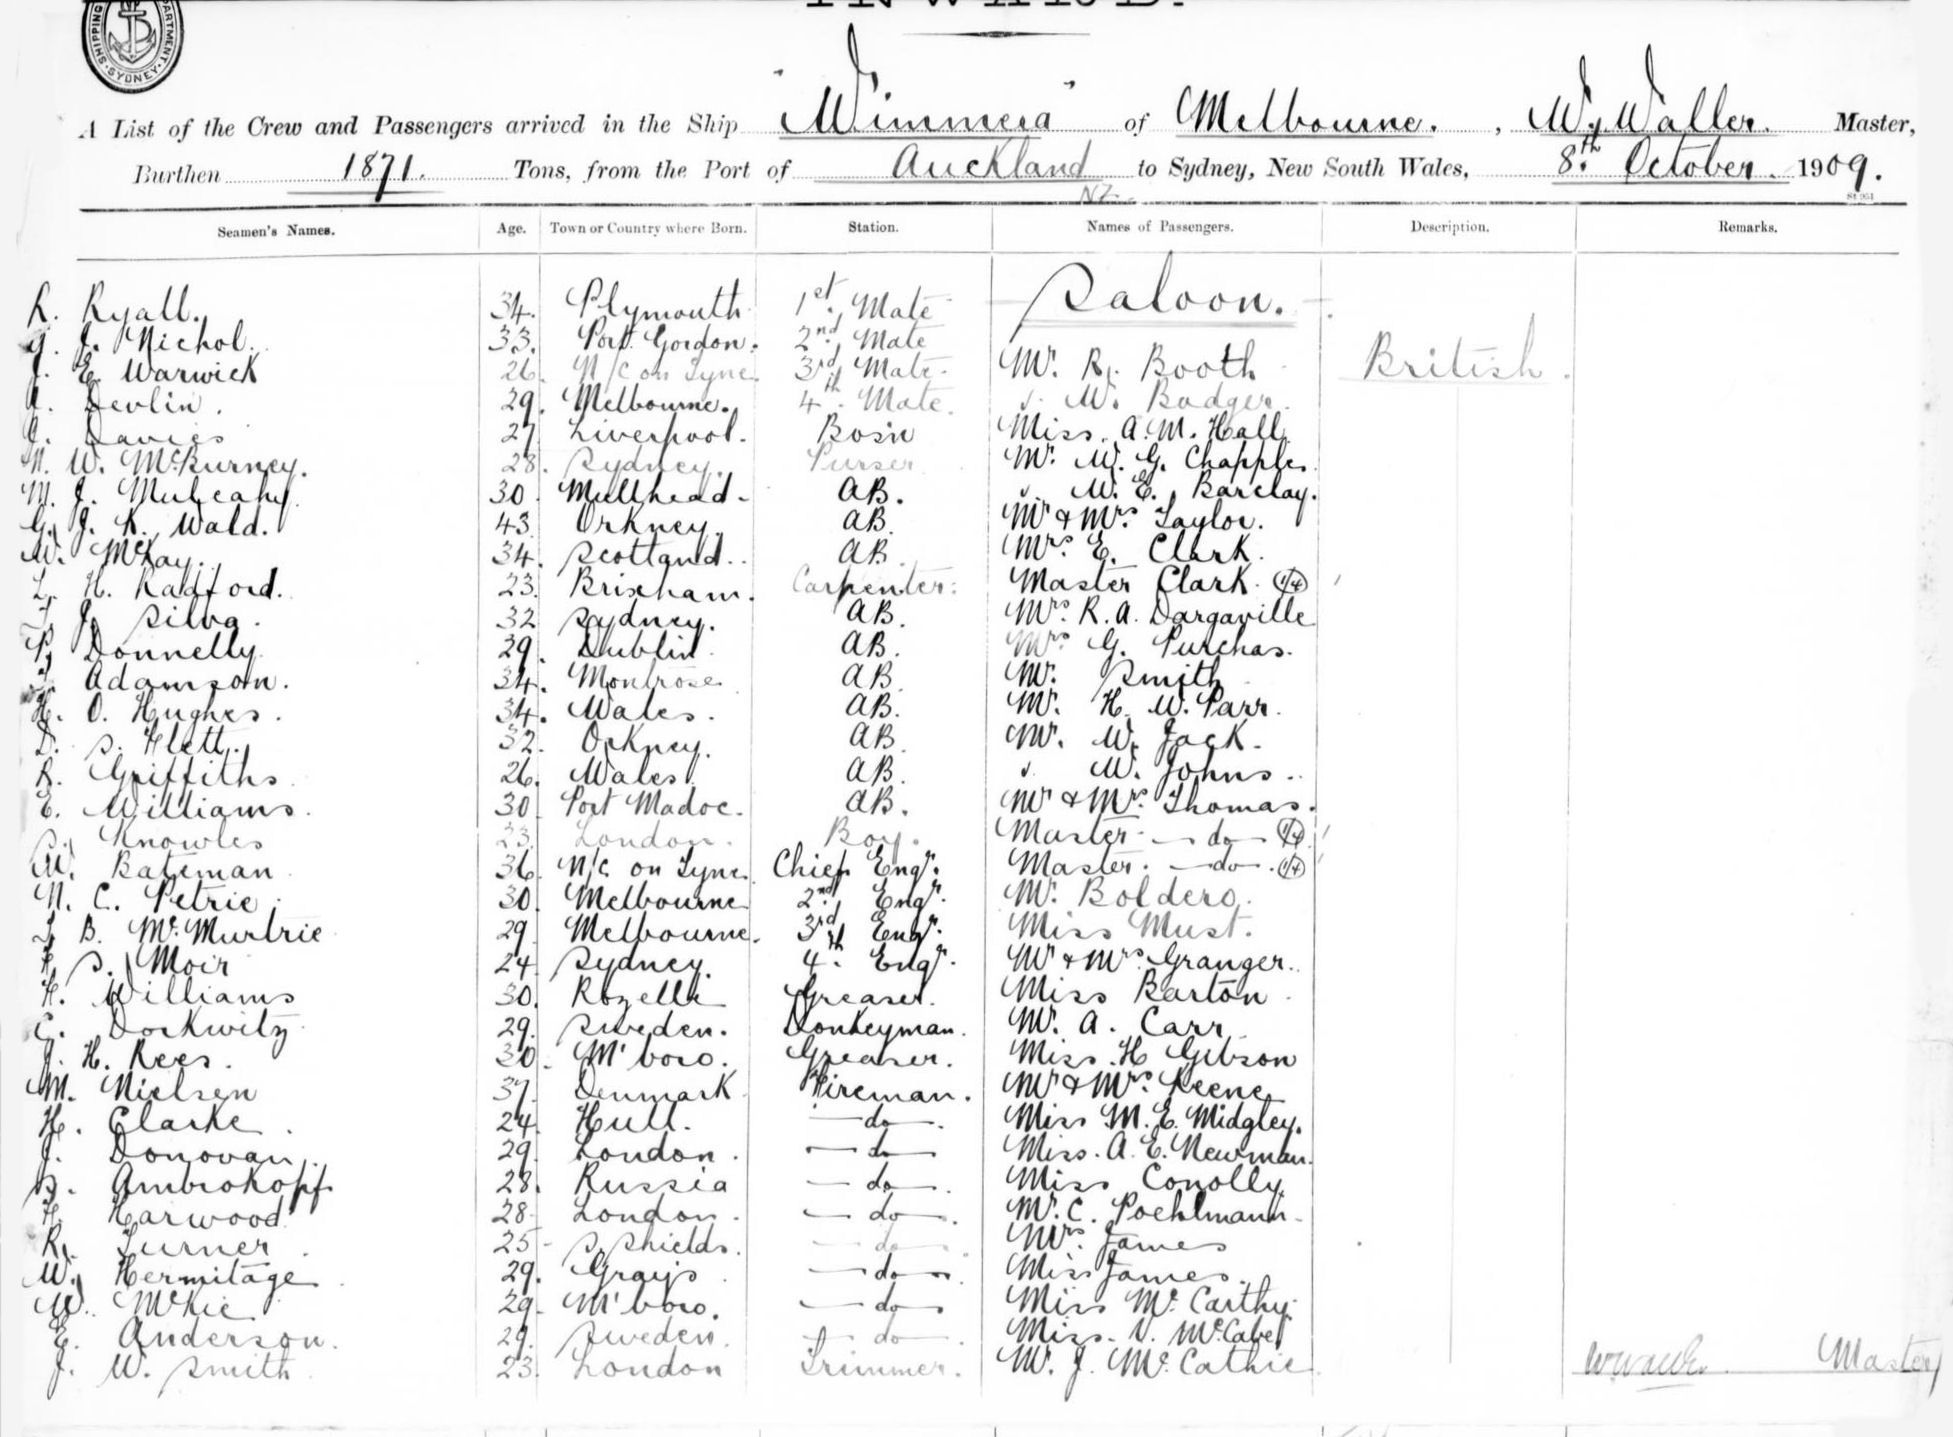 SHIPPING DEPARTMENT. SYDNEY.
INWARD.
A List of the Crew and Passengers arrived in the Ship "Wimmera" of Melbourne. , W. Waller. Master,
Burthen 1871. Tons, from the Port of Auckland to Sydney, New South Wales, 8th October. 1909.
NZ.
Seamen's Names. Age. Town or Country where Born. Station. Names of Passengers. Description. Remarks.
Saloon.
R. Ryall. 34. Plymouth 1st Mate
G. J. Nichol. 33. Port Gordon. 2nd Mate
J. E. Warwick 26. N/C on Tyne. 3rd Mate. Mr. R. Booth British.
Devlin. 29. Melbourne. 4th Mate. W. Badger.
J. Davies 27. Liverpool. Bosn Miss. A. M. Hall.
N. W. McBurney. 28. Sydney. Purser Mr. W. G. Chapples.
M. J. Mulcahy. 30 Mullhead. AB. W. E. Barclay.
G. J. K. Wald. 43. Orkney. AB. Mr & Mrs. Taylor.
W. McKay. 34. Scotland. AB. Mrs. E. Clark.
L. H. Radford. 23. Brixham. Carpenter. Master Clark. (1/4)
J. Silva. 32 Sydney. AB. Mrs R. A. Dargaville
P. Donnelly. 29. Dublin. AB. Mrs G. Purchas.
Adamson. 34. Montrose AB. Mr. Smith
H. O. Hughes. 34. Wales. AB. Mr. H. W. Parr.
D. S. Flett. 32. Orkney. AB. Mr. W. Jack.
R. Griffiths 26. Wales. AB. W. Johns.
E. Williams. 30 Port Madoc. AB. Mr & Mrs Thomas.
S. Knowles 23. London. Boy. Master — do — (1/4)
W. Bateman 36. N/C on Tyne. Chief Engr. Master. — do — . (1/4)
N. C. Petrie. 30. Melbourne 2nd Engr. Mr. Boldero.
J. B. McMurtrie 29. Melbourne. 3rd Engr. Miss Must.
S. Moir 24 Sydney. 4th Engr. Mr & Mrs. Granger.
H. Williams 30. Rozelle Greaser. Miss Barton
C. Doskwitz 29. Sweden. Donkeyman. Mr. A. Carr.
J. H. Rees. 30. M'boro. Greaser. Miss. H Gibson
M. Nielsen 37. Denmark Fireman. Mr & Mrs. Keene.
H. Clarke. 24. Hull. — do — . Miss M. E. Midgley.
J. Donovan. 29. London. — do — Miss. A. E. Newman.
Ambrokopf 28. Russia — do — . Miss Conolly.
H. Harwood 28. London. — do — . Mr. C. Poehlmann.
R. Turner. 25 S. Shields. — do — Mrs. James
W. Hermitage. 29. Grays — do — . Miss James.
W. McKie 29. M'boro. — do — Miss McCarthy.
E. Anderson. 29. Sweden. — do — . Miss. V. McCabe
J. W. Smith 23. London Trimmer. Mr. J. McCathie
W Waller. Master